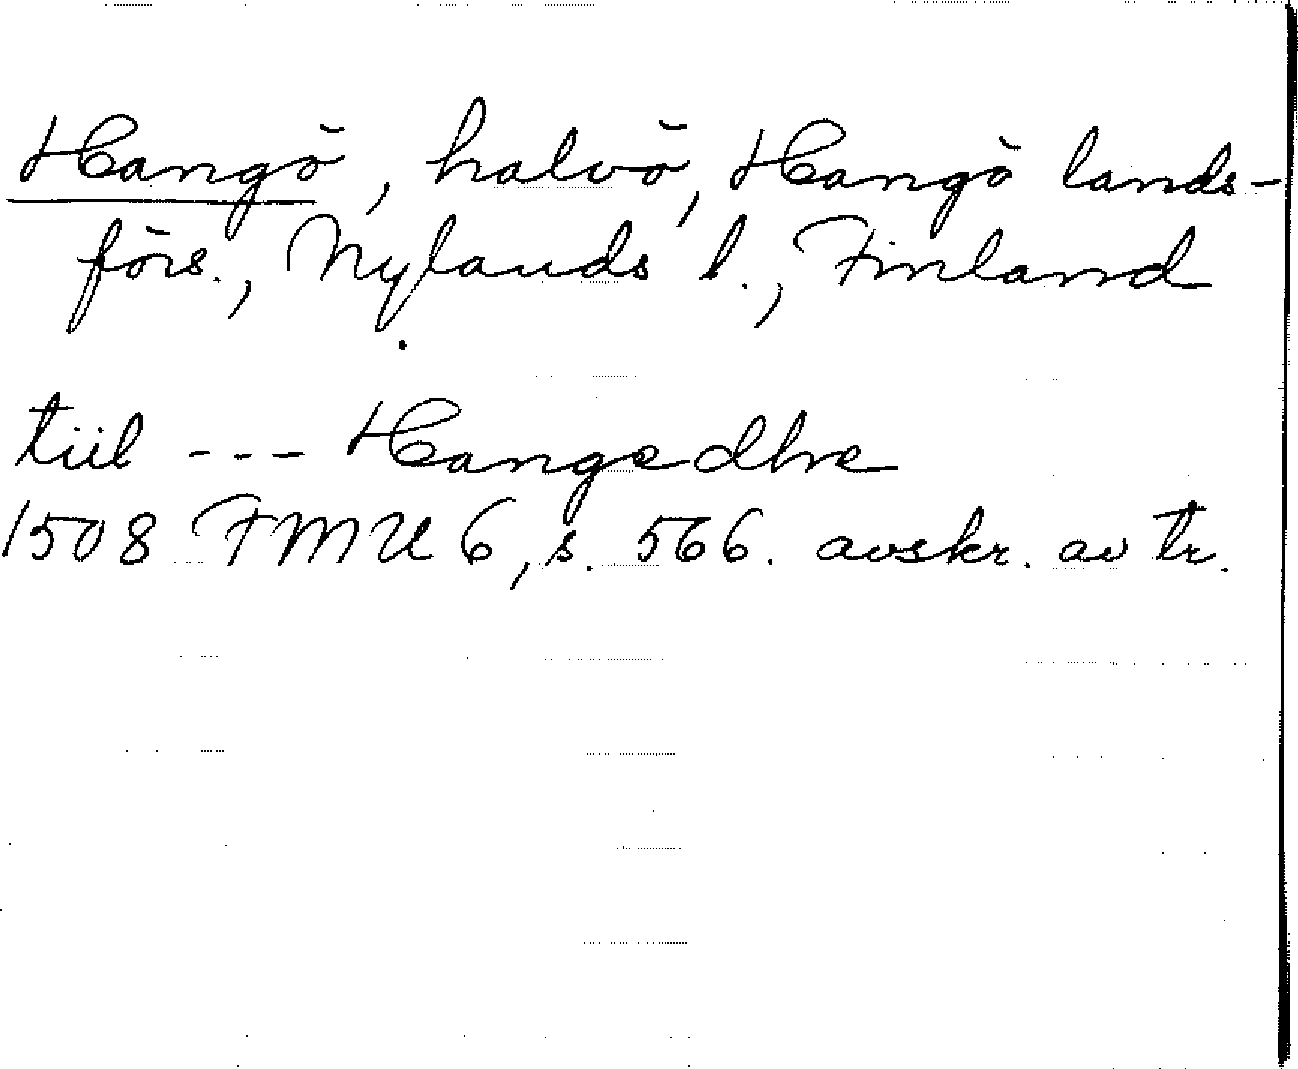 Hangö, halvö, Hangö lands-
förs., Nylands l., Finland
tiil --- Hangedhe
1508 FMU 6, s. 566. avskr. av tr.